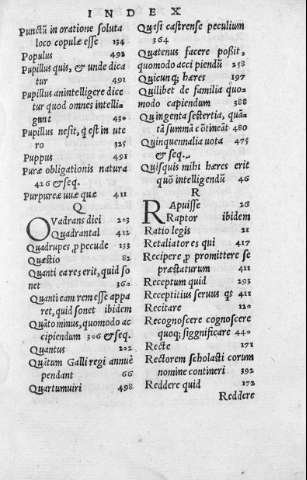 INDEX
Punctū in oratione soluta
loco copulæ esse 134
Populus 492
Pupillus quis, & unde dica
tur 491
Pupillum an intelligere dici
tur quod omnes intelli
gunt 430
Pupillus nescit, q̄ est in ute
ro 325
Puppus 491
Puræ obligationis natura
426 & seq.
Purpureæ uuæ quæ 411
Q
QVadrans dici 203
Quadrantal 412
Quadrupes, p pecude 133
Quæstio 82
Quanti ea res erit, quid so
net 360
Quanti eam rem esse appa
ret, quid sonet ibidem
Quāto minus, quomodo ac
cipiendum 306 & seq.
Quantus 202
Quātum Galli regi annuè
pendant 66
Quartumuiri 498
Quasi castrense peculium
364
Quatenus facere possit,
quomodo accipiendū 258
Quicunq; hæres 197
Quilibet de familia quo-
modo capiendum 388
Quingenta sestertia, quā
tā summā cōtineāt 480
Quinquennalia uota 475
& seq.
Quisquis mihi hæres erit
quō intelligendū 46
R
RApuisse 26
Raptor ibidem
Ratio legis 21
Retaliatores qui 417
Recipere, p promittere se
præstaturum 411
Receptum quid 293
Receptitius seruus qs 411
Recitare 120
Recognoscere cognoscere
quoq; siggnificare 440
Recte 171
Rectorem scholasticorum
nomine contineri 392
Reddere quid 172
Reddere